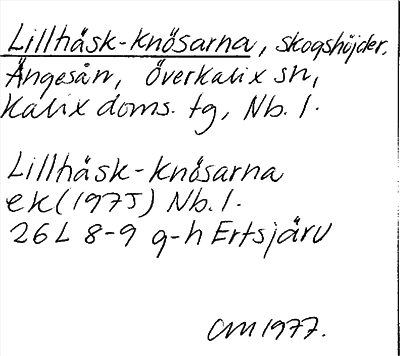 Lillhåsk-knösarna, skogshöjder,
Ängesån, Överkalix sn,
Kalix doms. tg, Nb. l.
Lillhåsk-knösarna
ek (1975) Nb. l.
26L 8-9 g-h Ertsjärv
CM 1977.